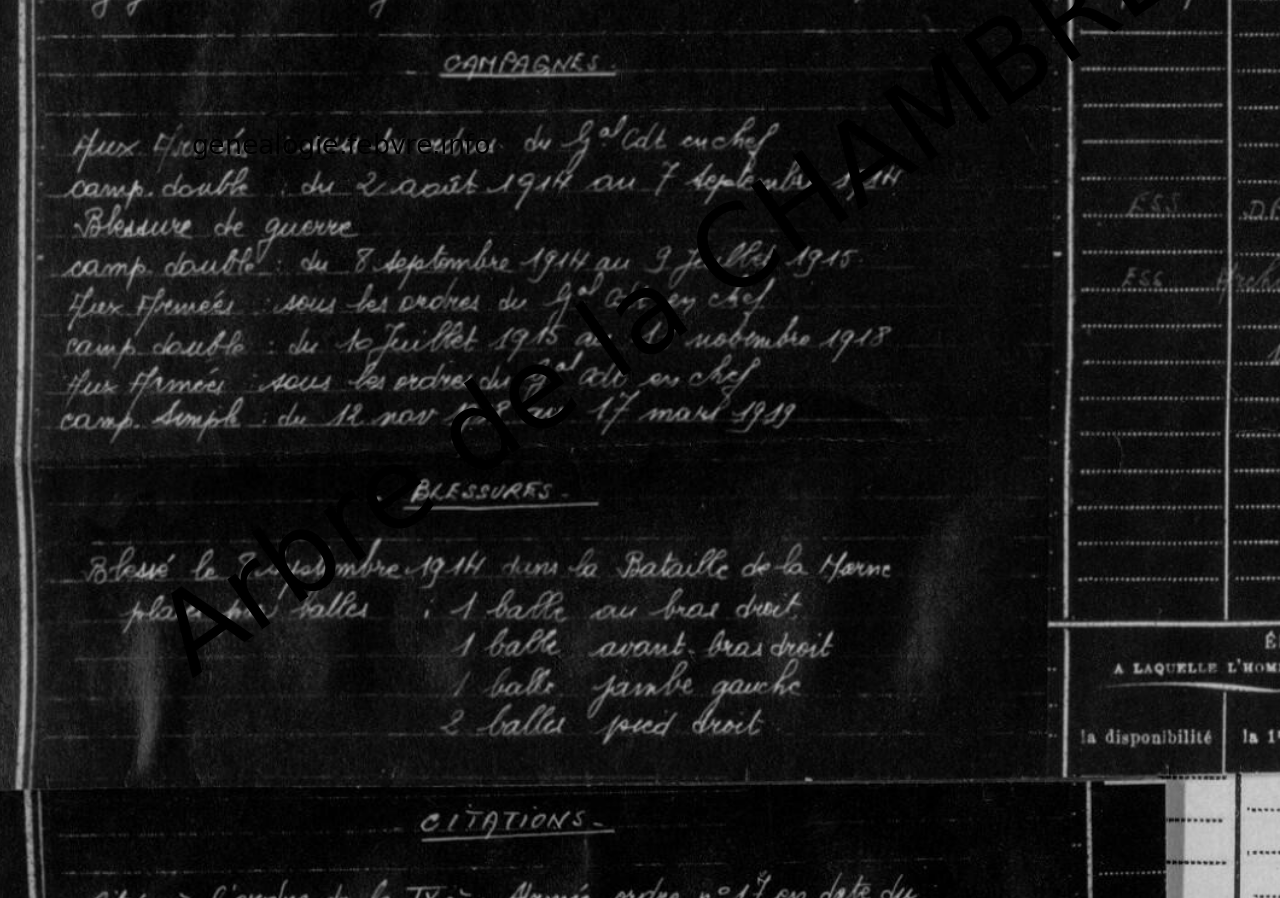 CAMPAGNES.
Aux Armées sous les ordres du Gal Cdt en chef
genealogie-lefebvre.info
camp. double : du 2 août 1914 au 7 septembre 1914
Blessure de guerre
camp. double : du 8 septembre 1914 au 9 juillet 1915
Aux Armées : sous les ordres du Gal Cdt en chef
camp. double : du 10 Juillet 1915 au novembre 1918
Aux Armées : sous les ordres du Gal Cdt en chef
camp. simple : du 12 nov 1918 au 17 mars 1919
Arbre de la CHAMBRE
BLESSURES -
Blessé le septembre 1914 dans la Bataille de la Marne
plaies par balles : 1 balle au bras droit
1 balle avant-bras droit
1 balle jambe gauche
2 balles pied droit
CITATIONS -
l'ordre de la Armée ordre n° 17 en date du
ESS
ESS
A LAQUELLE L'HOM
la disponibilité
la 1